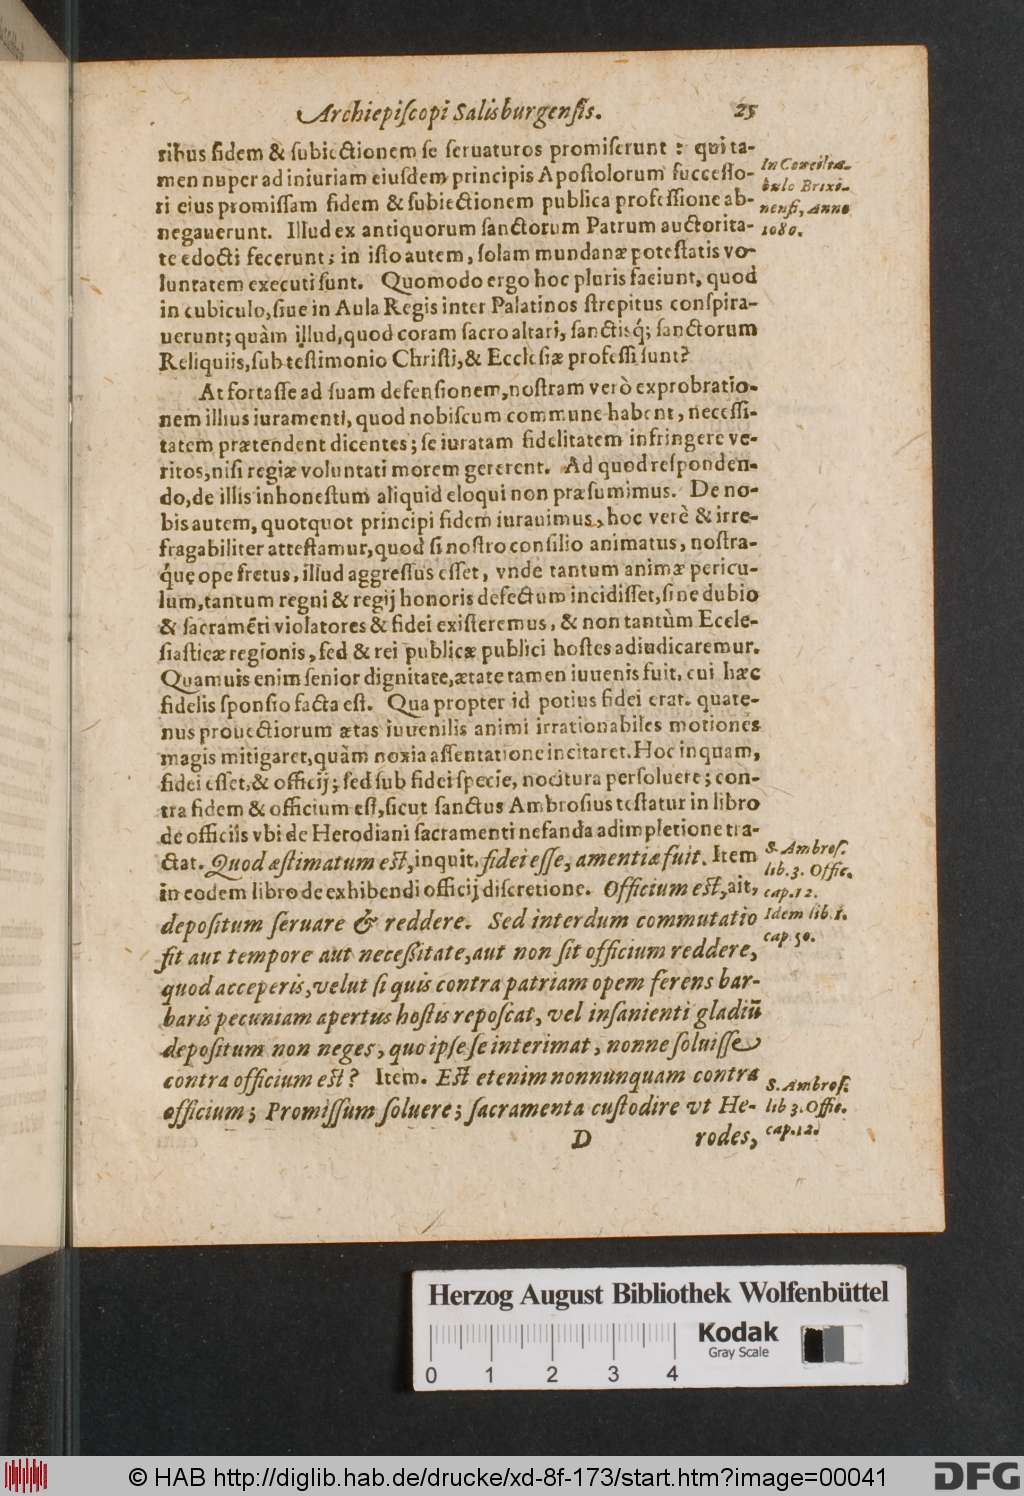 Archiepiſcopi Salisburgenſis. 25
ribus fidem & ſubiectionem ſe ſeruaturos promiſerunt : qui ta-
men nuper ad iniuriam eiuſdem principis Apoſtolorum ſucceſſo-
ri eius promiſſam fidem & ſubiectionem publica profeſſione ab-
negauerunt. Illud ex antiquorum ſanctorum Patrum auctorita-
te edocti fecerunt; in iſto autem, ſolam mundanæ poteſtatis vo-
luntatem executi ſunt. Quomodo ergo hoc pluris faciunt, quod
in cubiculo, ſiue in Aula Regis inter Palatinos ſtrepitus conſpira-
uerunt; quàm illud, quod coram ſacro altari, ſanctisq́; ſanctorum
Reliquiis, ſub teſtimonio Chriſti, & Eccleſiæ profeſſi ſunt?
In Concilia-
bulo Brixi-
nenſi, Anno
1080.
At fortaſſe ad ſuam defenſionem, noſtram verò exprobratio-
nem illius iuramenti, quod nobiſcum commune habent, neceſſi-
tatem prætendent dicentes; ſe iuratam fidelitatem infringere ve-
ritos, niſi regiæ voluntati morem gererent. Ad quod reſponden-
do, de illis inhoneſtum aliquid eloqui non præſumimus. De no-
bis autem, quotquot principi fidem iurauimus, hoc verè & irre-
fragabiliter atteſtamur, quod ſi noſtro conſilio animatus, noſtra-
q́uę ope fretus, illud aggreſſus eſſet, vnde tantum animæ pericu-
lum, tantum regni & regij honoris defectum incidiſſet, ſine dubio
& ſacramẽti violatores & fidei exiſteremus, & non tantùm Eccle-
ſiaſticæ regionis, ſed & rei publicæ publici hoſtes adiudicaremur.
Quamuis enim ſenior dignitate, ætate tamen iuuenis fuit, cui hæc
fidelis ſponſio facta eſt. Qua propter id potius fidei erat. quate-
nus prouectiorum ætas iuuenilis animi irrationabiles motiones
magis mitigaret, quàm noxia aſſentatione incitaret. Hoc inquam,
fidei eſſet, & officij; ſed ſub fidei ſpecie, nocitura perſoluere; con-
tra fidem & officium eſt, ſicut ſanctus Ambroſius teſtatur in libro
de officiis vbi de Herodiani ſacramenti nefanda adimpletione tra-
ctat. Quod æſtimatum eſt, inquit, fidei eſſe, amentiæ fuit. Item
in eodem libro de exhibendi officij diſcretione. Officium eſt, ait,
depoſitum ſeruare & reddere. Sed interdum commutatio
fit aut tempore aut neceſſitate, aut non ſit officium reddere,
quod acceperis, velut ſi quis contra patriam opem ferens bar-
baris pecuniam apertus hoſtis repoſcat, vel inſanienti gladiũ
depoſitum non neges, quo ipſe ſe interimat, nonne ſoluiſſe
contra officium eſt? Item. Eſt etenim nonnunquam contra
officium; Promiſſum ſoluere; ſacramenta cuſtodire vt He-
S. Ambroſ.
lib. 3. Offic.
cap. 12.
Idem lib. 1.
cap. 50.
S. Ambroſ.
lib 3. Offic.
cap. 12.
D rodes,
Herzog August Bibliothek Wolfenbüttel
Kodak
Gray Scale
0 1 2 3 4
© HAB http://diglib.hab.de/drucke/xd-8f-173/start.htm?image=00041
DFG